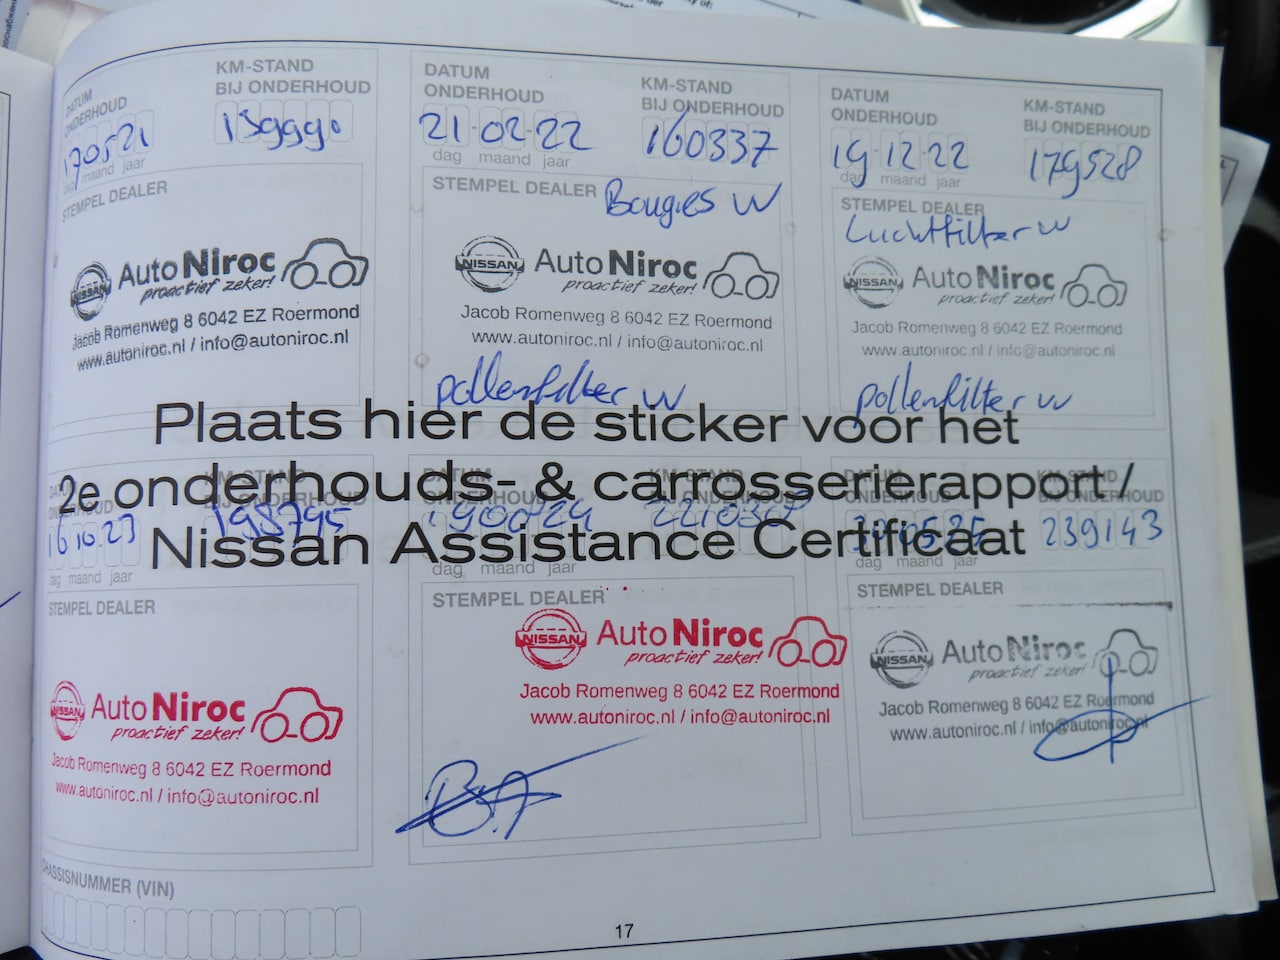 DATUM
ONDERHOUD
170521
dag maand jaar
KM-STAND
BIJ ONDERHOUD
139990
STEMPEL DEALER
NISSAN
Auto Niroc
proactief zeker!
Jacob Romenweg 8 6042 EZ Roermond
www.autoniroc.nl / info@autoniroc.nl
DATUM
ONDERHOUD
21-02-22
dag maand jaar
KM-STAND
BIJ ONDERHOUD
160337
STEMPEL DEALER
Bougies W
NISSAN
Auto Niroc
proactief zeker!
Jacob Romenweg 8 6042 EZ Roermond
www.autoniroc.nl / info@autoniroc.nl
pollenfilter W
DATUM
ONDERHOUD
19-12-22
dag maand jaar
KM-STAND
BIJ ONDERHOUD
179528
STEMPEL DEALER
Luchtfilter W
NISSAN
Auto Niroc
proactief zeker!
Jacob Romenweg 8 6042 EZ Roermond
www.autoniroc.nl / info@autoniroc.nl
pollenfilter W
Plaats hier de sticker voor het
2e onderhouds- & carrosserierapport /
Nissan Assistance Certificaat
DATUM
ONDERHOUD
16 10.23
dag maand jaar
KM-STAND
BIJ ONDERHOUD
198795
STEMPEL DEALER
NISSAN
Auto Niroc
proactief zeker!
Jacob Romenweg 8 6042 EZ Roermond
www.autoniroc.nl / info@autoniroc.nl
DATUM
ONDERHOUD
dag maand jaar
KM-STAND
BIJ ONDERHOUD
STEMPEL DEALER
NISSAN
Auto Niroc
proactief zeker!
Jacob Romenweg 8 6042 EZ Roermond
www.autoniroc.nl / info@autoniroc.nl
DATUM
ONDERHOUD
dag maand jaar
KM-STAND
BIJ ONDERHOUD
239143
STEMPEL DEALER
NISSAN
Auto Niroc
proactief zeker!
Jacob Romenweg 8 6042 EZ Roermond
www.autoniroc.nl / info@autoniroc.nl
CHASSISNUMMER (VIN)
17